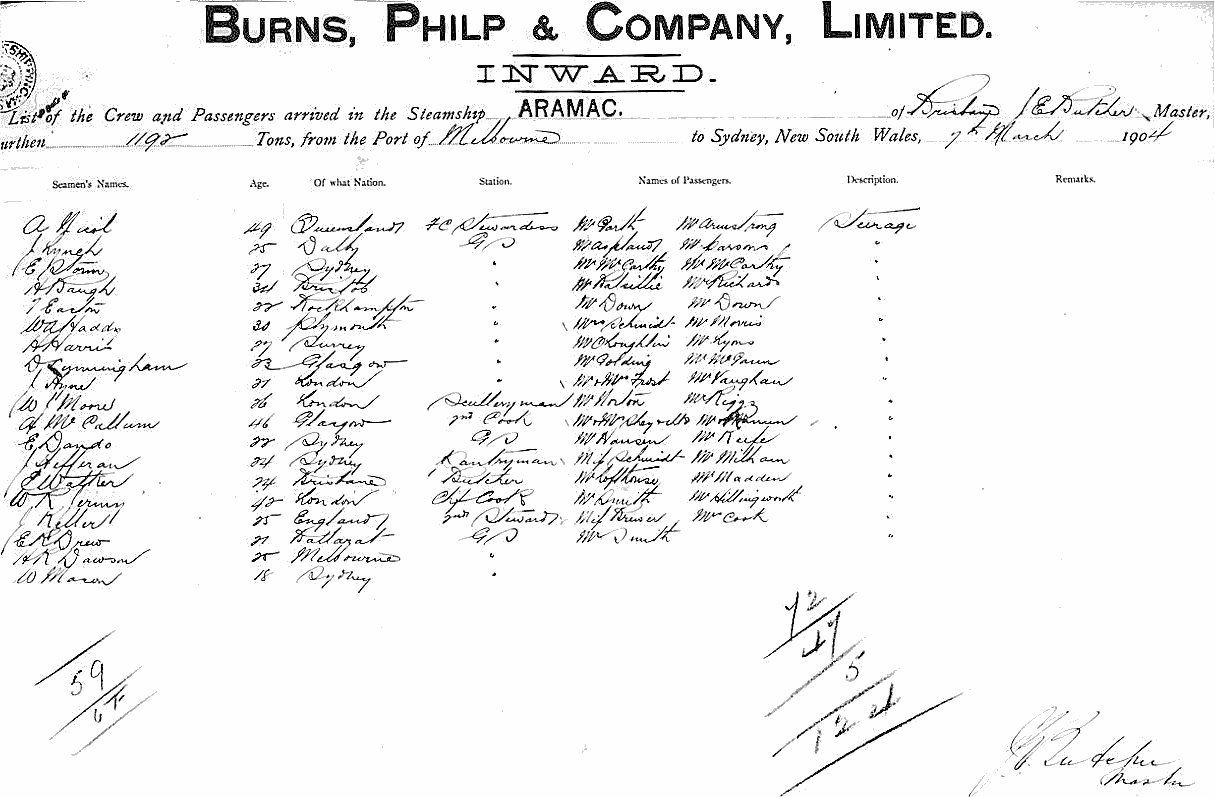 BURNS, PHILP & COMPANY, LIMITED.
INWARD.
List of the Crew and Passengers arrived in the Steamship ARAMAC. of Brisbane J E Butcher Master,
urthen 1192 Tons, from the Port of Melbourne to Sydney, New South Wales, 7th March 1904
Seamen's Names. Age. Of what Nation. Station. Names of Passengers. Description. Remarks.
A Nicol 49 Queensland F C Stewardess Mr Garth Mr Armstrong Steerage
J Lynch 25 Dalby G S Mr Parsons "
E Storm 27 Sydney " Mr McCarthy Mr McCarthy "
H Baugh 34 Bristol " Mr Richards "
T Easton 22 Rockhampton " Mr Down Mr Down "
W A Haddo 30 Plymouth " Mrs Schmidt Mr Morris "
A Harris 27 Surrey " Mr O'Loughlin Mr Lyons "
D Cunningham 23 Glasgow " Mr Golding Mr McGann "
J Ayne 21 London " Mr & Mrs Frost Mr Vaughan "
W J Moore 26 London Sculleryman Mr Norton Mr Riggs "
A McCallum 46 Glasgow 2nd Cook Mr & Mrs "
E Dando 22 Sydney G S Mr Hansen Mr Keefe "
J Hefferan 24 Sydney Pantryman Miss Schmidt Mr Milham "
E Walker 24 Brisbane Butcher Mr Lofthouse Mr Madden "
W R 42 London Chf Cook Mr Smith Mr Hillingworth "
J Keller 25 England 2nd Steward Miss Mr Cook "
E R Drew 21 Ballarat G S Mr Smith "
H R Dawson 25 Melbourne "
W Mason 18 Sydney "
72
47
59
5
65
124
J E Butcher
Master